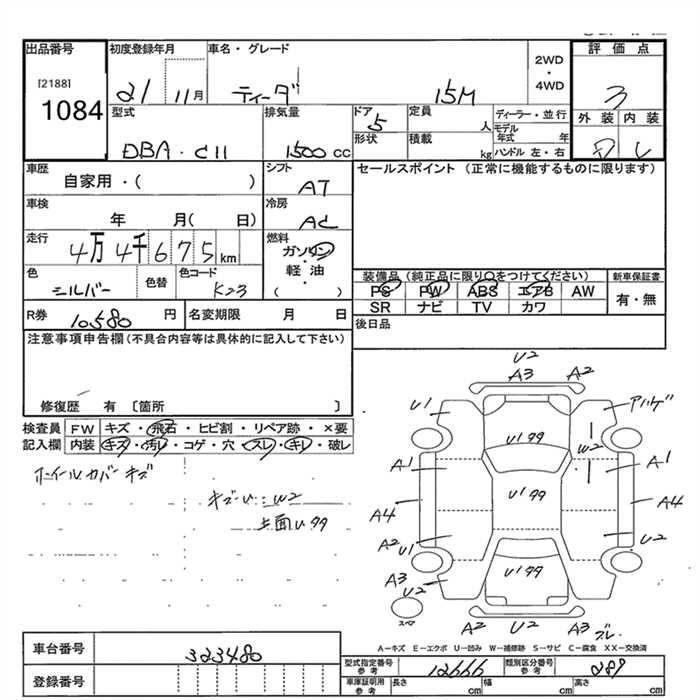 出品番号 初度登録年月 車名・グレード 2WD・4WD 評価点
[2188]
1084 21 11月 ティーダ 15M 3
型式 排気量 ドア 定員 人 ディーラー・並行 外装 内装
DBA・C11 1500 CC 5 モデル年式 年
形状 積載 kg ハンドル 左・右
車歴 自家用・( ) シフト AT セールスポイント (正常に機能するものに限ります)
車検 年 月( 日) 冷房 AC
走行 4万4千675km 燃料 ガソリン・軽油 ( )
色 シルバー 色替 色コード K23
装備品 (純正品に限り○をつけてください) 新車保証書
PS PW ABS エアB AW 有・無
SR ナビ TV カワ
R券 10580 円 名変期限 月 日 後日品
注意事項申告欄 (不具合内容等は具体的に記入して下さい)
修復歴 有 〔箇所 〕
検査員 FW キズ・飛石・ヒビ割・リペア跡・×要
記入欄 内装 キズ・汚レ・コゲ・穴・スレ・キレ・破レ
ホイールカバーキズ
U2
A3 A2
U1
U1
W2
A1 A1
U1
A4 A4
A2 U1 U2
A3
U2
U1
スペア
A2 U2 A3
A―キズ E―エクボ U―凹み W―補修跡 S―サビ C―腐食 XX―交換済
車台番号 323480
登録番号
型式指定番号 参考 12666 類別区分番号 参考 289
車庫証明用 参考 長さ cm 幅 cm 高さ cm